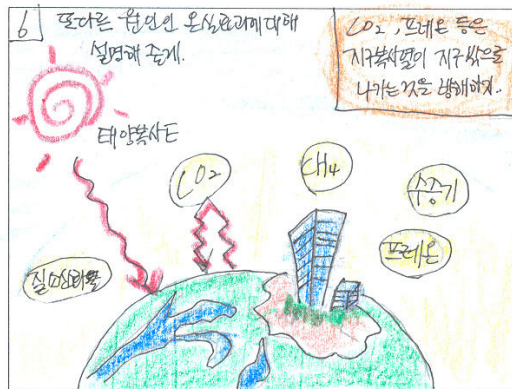 6
또다른 원인인 온실효과에 대해
설명해 줄게.
CO2, 프레온 등은
지구복사열이 지구 밖으로
나가는 것을 방해하지..
태양복사E
CO2
CH4
수증기
프레온
질소산화물